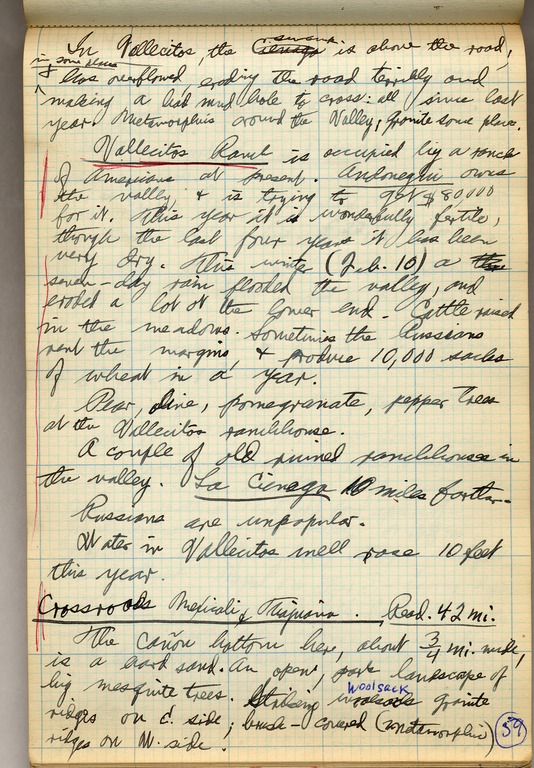 In Vallecitos, the swamp is above the road,
in some places has overflowed eroding the road terribly and
making a bad mud hole to cross: all since last
year. Metamorphics around the valley, granite some place.
Vallecitos Ranch is occupied by a ranch
of Americans at present. Andonegui owns
the valley, & is trying to get $80000
for it. This year it is wonderfully fertile,
though the last four years it has been
very dry. This winter (Feb. 10) a
seven-day rain flooded the valley, and
eroded a lot at the lower end. Cattle raised
in the meadows. Sometimes the Russians
rent the margins, & produce 10,000 sacks
of wheat in a year.
Pear, olive, pomegranate, pepper trees
at the Vallecitos ranchhouse.
A couple of old ruined ranchhouses in
the valley. La Cienega 10 miles farther.
Russians are unpopular.
Water in Vallecitos well rose 10 feet
this year.
Crossroads Mexicali, Tiajuana. Road. 42 mi.
The cañon bottom here, about 3/4 mi. wide,
is a hard sand. An open, park landscape of
big mesquite trees. Striking woolsack granite
ridges on E. side; brush-covered (metamorphic)
ridges on W. side.
59